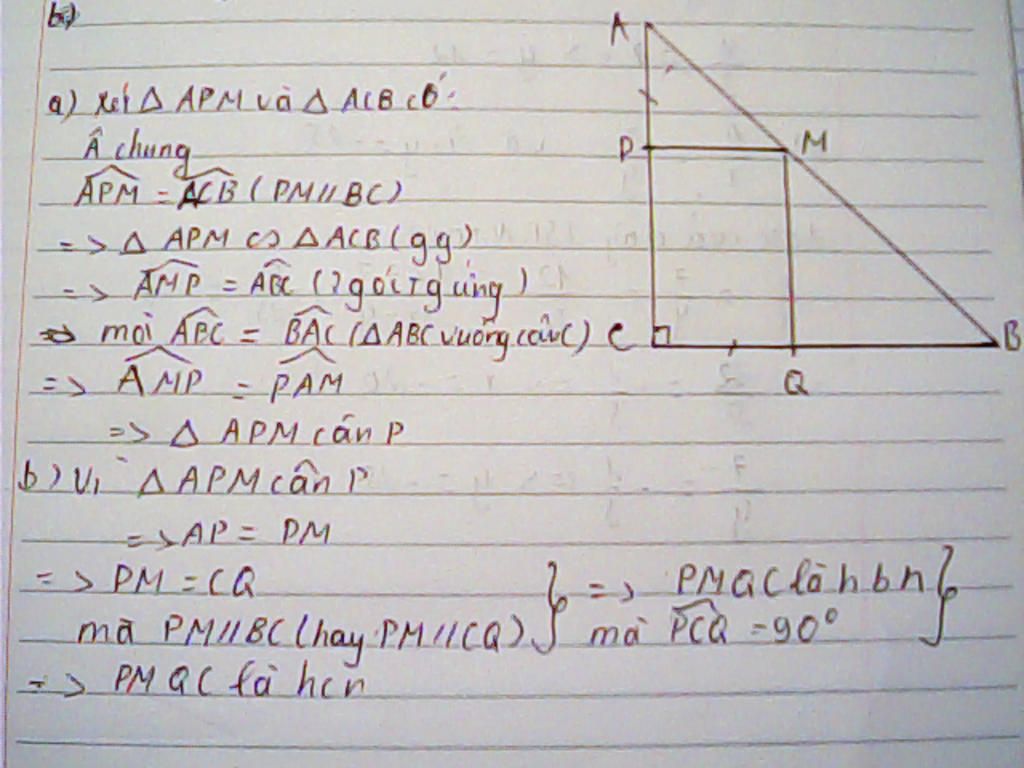 b)
a) Xét Δ APM và Δ ACB có:
Â chung
APM = ACB (PM // BC)
=> Δ APM ∽ Δ ACB (gg)
=> AMP = ABC (2 góc tg ứng)
=> mà ABC = BAC (Δ ABC vuông cân C)
=> AMP = PAM
=> Δ APM cân P
b) Vì Δ APM cân P
=> AP = PM
=> PM = CQ } => PMQC là hbh }
mà PM // BC (hay PM // CQ) } mà PCQ = 90°
=> PMQC là hcn
A
P M
C B
Q